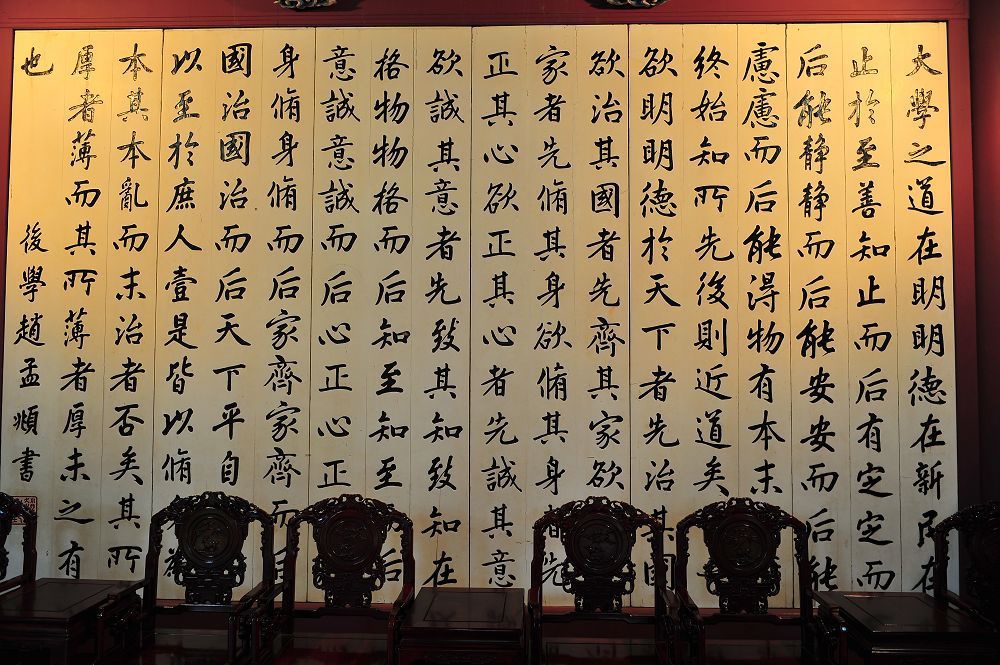 大學之道在明明德在新民在
止於至善知止而后有定定而
后能靜靜而后能安安而后能
慮慮而后能得物有本末
終始知所先後則近道矣
欲明明德於天下者先治其國
欲治其國者先齊其家欲
家者先脩其身欲脩其身者先
正其心欲正其心者先誠其意
欲誠其意者先致其知致知在
格物物格而后知至知至后
意誠意誠而后心正心正
身脩身脩而后家齊家齊而
國治國治而后天下平自
以至於庶人壹是皆以脩身為
本其本亂而末治者否矣其所
厚者薄而其所薄者厚未之有
也
後學趙孟頫書